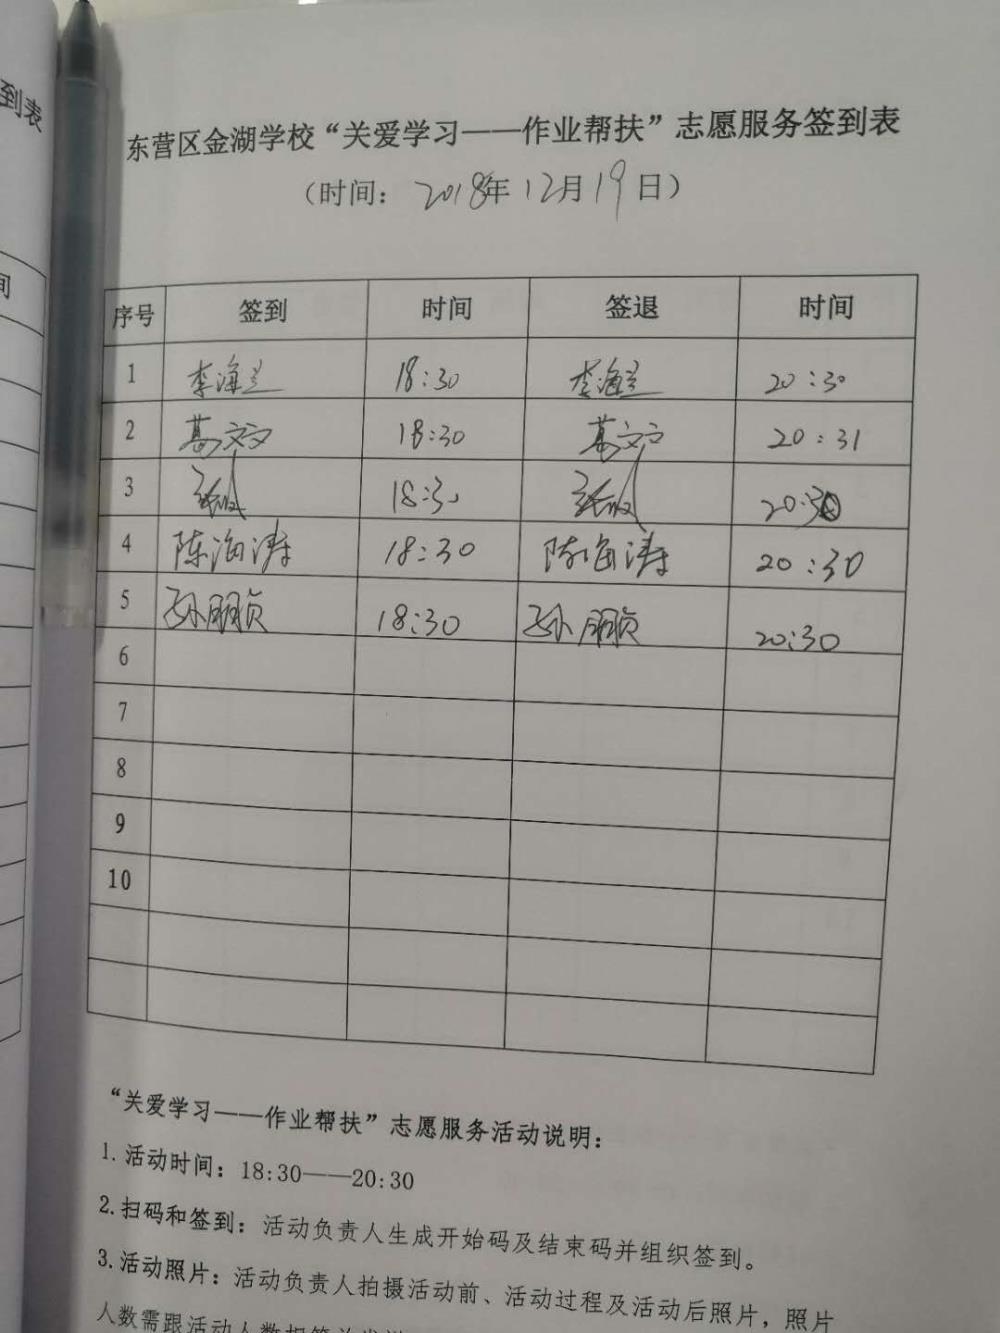 到表
间
东营区金湖学校“关爱学习——作业帮扶”志愿服务签到表
（时间：2018年12月19日）
序号 签到 时间 签退 时间
1 李海兰 18:30 李海兰 20:30
2 葛文文 18:30 葛文文 20:31
3 18:30 20:30
4 陈海涛 18:30 陈海涛 20:30
5 孙朋贞 18:30 孙朋贞 20:30
6
7
8
9
10
“关爱学习——作业帮扶”志愿服务活动说明：
1.活动时间：18:30——20:30
2.扫码和签到：活动负责人生成开始码及结束码并组织签到。
3.活动照片：活动负责人拍摄活动前、活动过程及活动后照片，照片
人数需跟活动人数相符